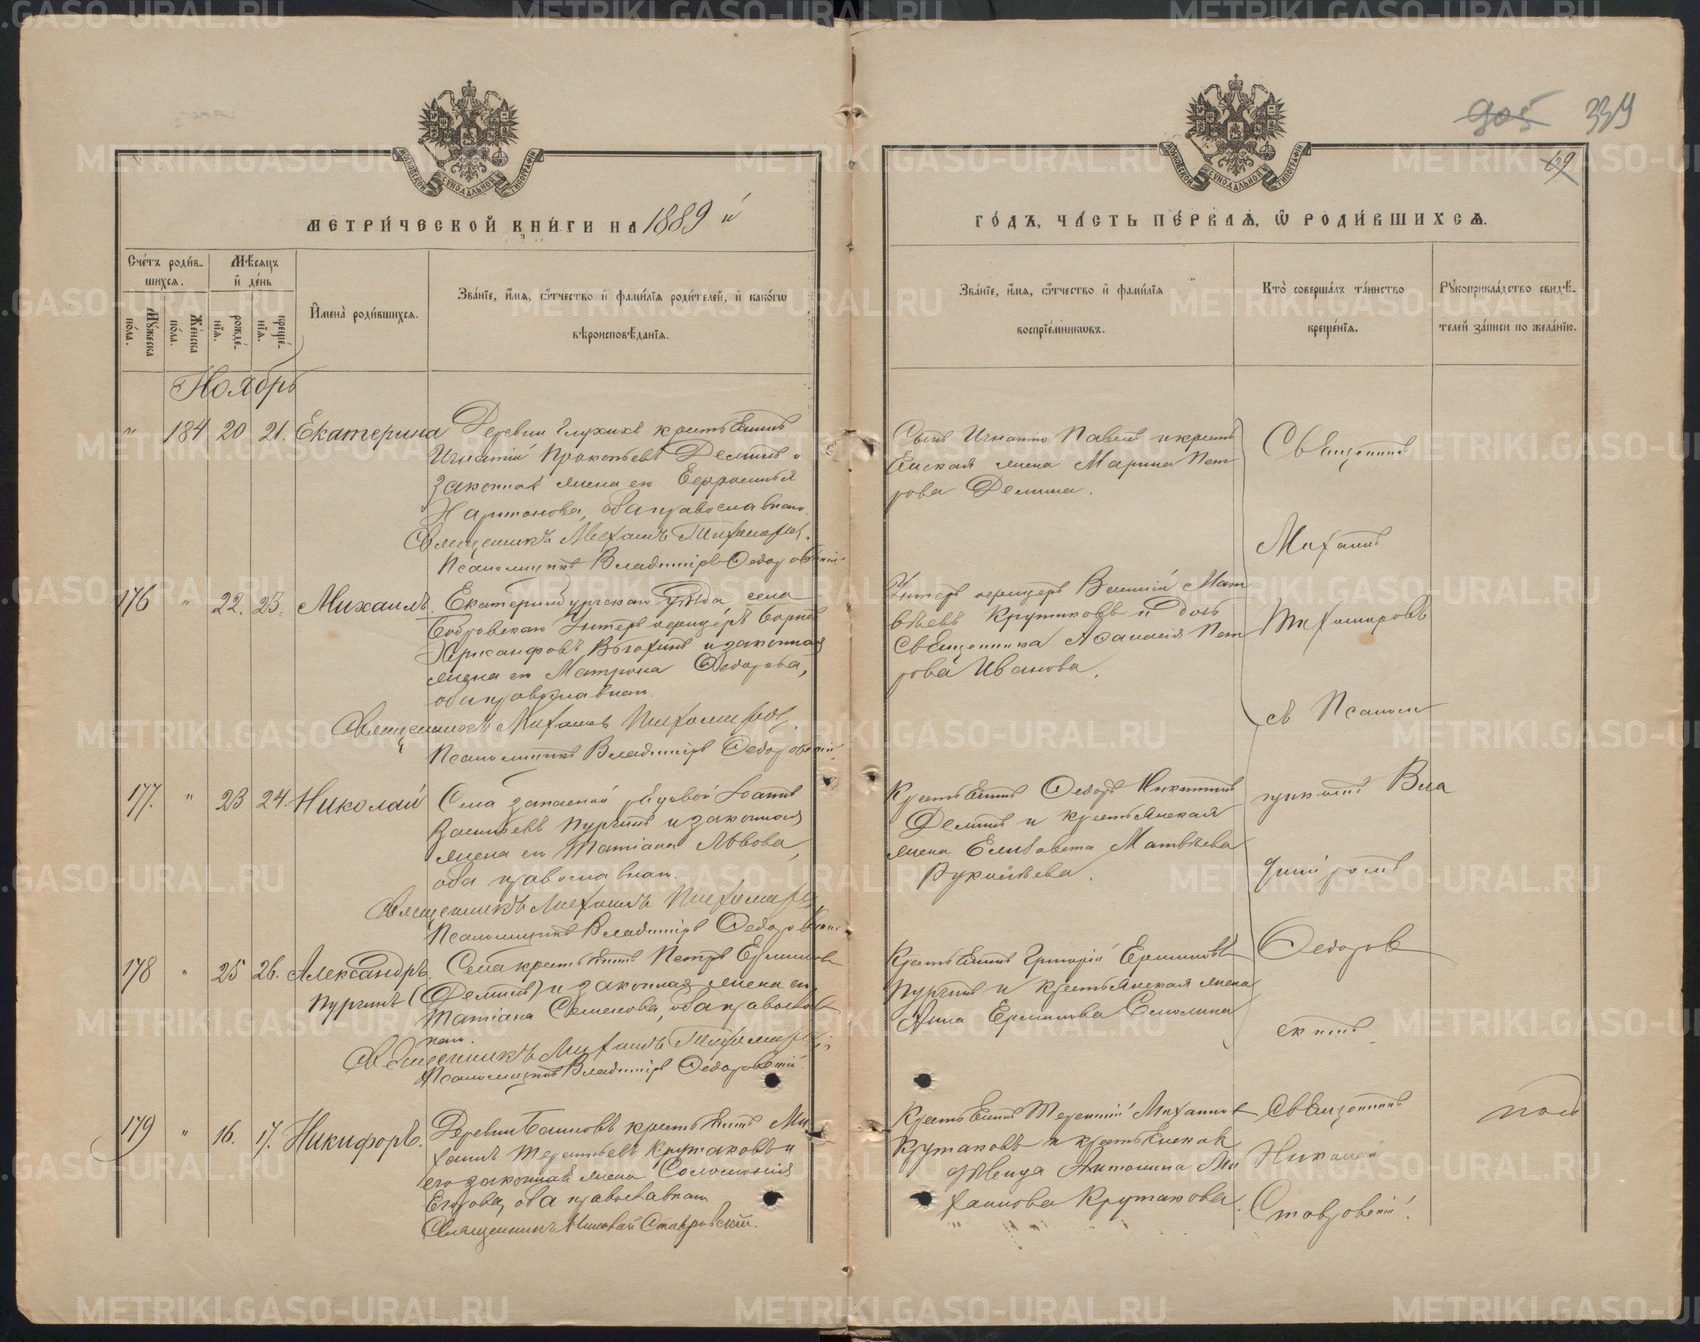 905 339
69
МЕТРИ́ЧЕСКОЙ КНИ́ГИ НА 1889 й
ГО́ДЪ, ЧА́СТЬ ПЕ́РВАѦ, Ѡ РОДИ́ВШИХСѦ.
Сче́тъ роди́в-
шихсѧ.
Мꙋжеска по́ла.
Же́нска пола.
Мѣ́сѧцъ и де́нь
рожде́-
нїѧ.
креще́-
нїѧ.
Имена̀ роди́вшихсѧ.
Зва́нїе, и́мѧ, ѻ҆́тчество и фами́лїѧ роди́телей, и како́гѡ
вѣроисповѣ́данїѧ.
Зва́нїе, и́мѧ, ѻ҆́тчество и фами́лїѧ
воспрїе́мникѡвъ.
Кто̀ соверша́лъ та́инство
креще́нїѧ.
Рꙋкоприкла́дство свидѣ́-
телей за́писи по жела́нїю.
Ноябрь
" 184 20 21. Екатерина
Деревни Глухихъ крестьянинъ
Игнатiй Прокопьевъ Деминъ и
законная жена его Евфросинья
Харитонова, оба православные.
Священникъ Михаилъ Тихомировъ.
Псаломщикъ Владимiръ Ѳедоровскiй
Сынъ Игнатiя Павелъ и кресть
янская жена Марина Пет
рова Демина.
176 " 22. 23. Михаилъ.
Екатеринбургскаго уѣзда села
Бобровскаго Унтеръ офицеръ
и законная
жена его Матрона Ѳедорова,
оба православные.
Священникъ Михаилъ Тихомировъ.
Псаломщикъ Владимiръ Ѳедоровскiй
Унтеръ офицеръ Василiй Мат
вѣевъ Крутиковъ и дочь
Священника Аѳанасiя Пет
рова Иванова.
177. " 23 24. Николай
Села запасной рядовой Iоаннъ
Васильевъ Пургинъ и законная
жена его Татiана Львова,
оба православные.
Священникъ Михаилъ Тихомировъ
Псаломщикъ Владимiръ Ѳедоровскiй
Крестьянинъ Ѳедоръ Никитинъ
Деминъ и крестьянская
жена Елизавета Матвѣева
178 " 25 26. Александръ.
Пургинъ
Села крестьянинъ Петръ Ермиловъ
(Деминъ) и законная жена его
Татiана Семенова, оба православ
ные.
Священникъ Михаилъ Тихомировъ
Псаломщикъ Владимiръ Ѳедоровскiй
Крестьянинъ Григорiй Ермиловъ
Пургинъ и крестьянская жена
Анна Ермилова Смолина
Священникъ
Михаилъ
Тихомировъ
съ Псалом
щикомъ Вла
димiромъ
Ѳедоров
скимъ
179 " 16. 17. Никифоръ.
Деревни Баиновъ крестьянинъ Ми
хаилъ Терентьевъ Крутаковъ и
его законная жена Соломонiя
Егорова, оба православные
Священникъ Николай Ставровскiй.
Крестьянинъ Терентiй Михаиловъ
Крутаковъ и крестьянская
дѣвица Антонина Ми
хаилова Крутакова.
Священникъ
Николай
Ставровскiй.